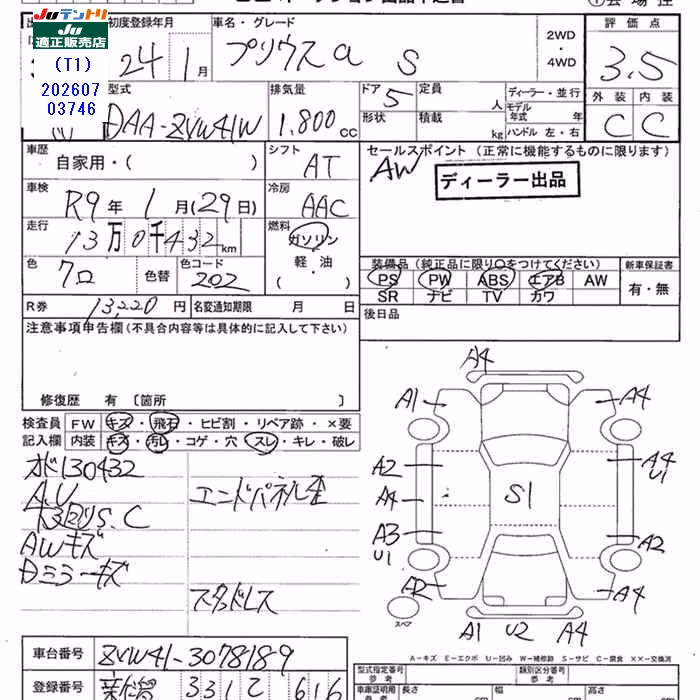 JUテントリ
JU 適正販売店
(T1)
202607
03746
初度登録年月
24 1月
車名・グレード
プリウスα S
2WD
・
4WD
評価点
3.5
型式
DAA-ZVW41W
排気量
1,800cc
ドア
5
定員
人
ディーラー・並行
モデル年式 年
形状
積載
kg
ハンドル 左・右
外装 内装
C C
車歴
自家用・( )
シフト
AT
セールスポイント(正常に機能するものに限ります)
AW
ディーラー出品
車検
R9年 1月(29日)
冷房
AAC
走行
13万0千432km
燃料
ガソリン
軽・油
( )
色
クロ
色替
色コード
202
装備品(純正品に限り○をつけてください)
PS PW ABS エアB AW
SR ナビ TV カワ
新車保証書
有・無
R券
13,220円
名変通知期限 月 日
後日品
注意事項申告欄(不具合内容等は具体的に記入して下さい)
修復歴 有〔箇所 〕
検査員
記入欄
FW キズ・飛石・ヒビ割・リペア跡・×要
内装 キズ・汚レ・コゲ・穴・スレ・キレ・破レ
130432
S.C
エンドパネル歪
AWキズ
Dミラーキズ
スタッドレス
A4
A1 A4
A2 A4 U1
A4 S1
A3 U1 A2
A2 A4
スペア
A1 U2 A4
A-キズ E-エクボ U-凹み W-補修跡 S-サビ C-腐食 ××-交換済
車台番号
ZVW41-3078189
登録番号
新潟 331 616
型式指定番号
参考
類別区分番号
参考
車庫証明用
参考
長さ
幅
高さ